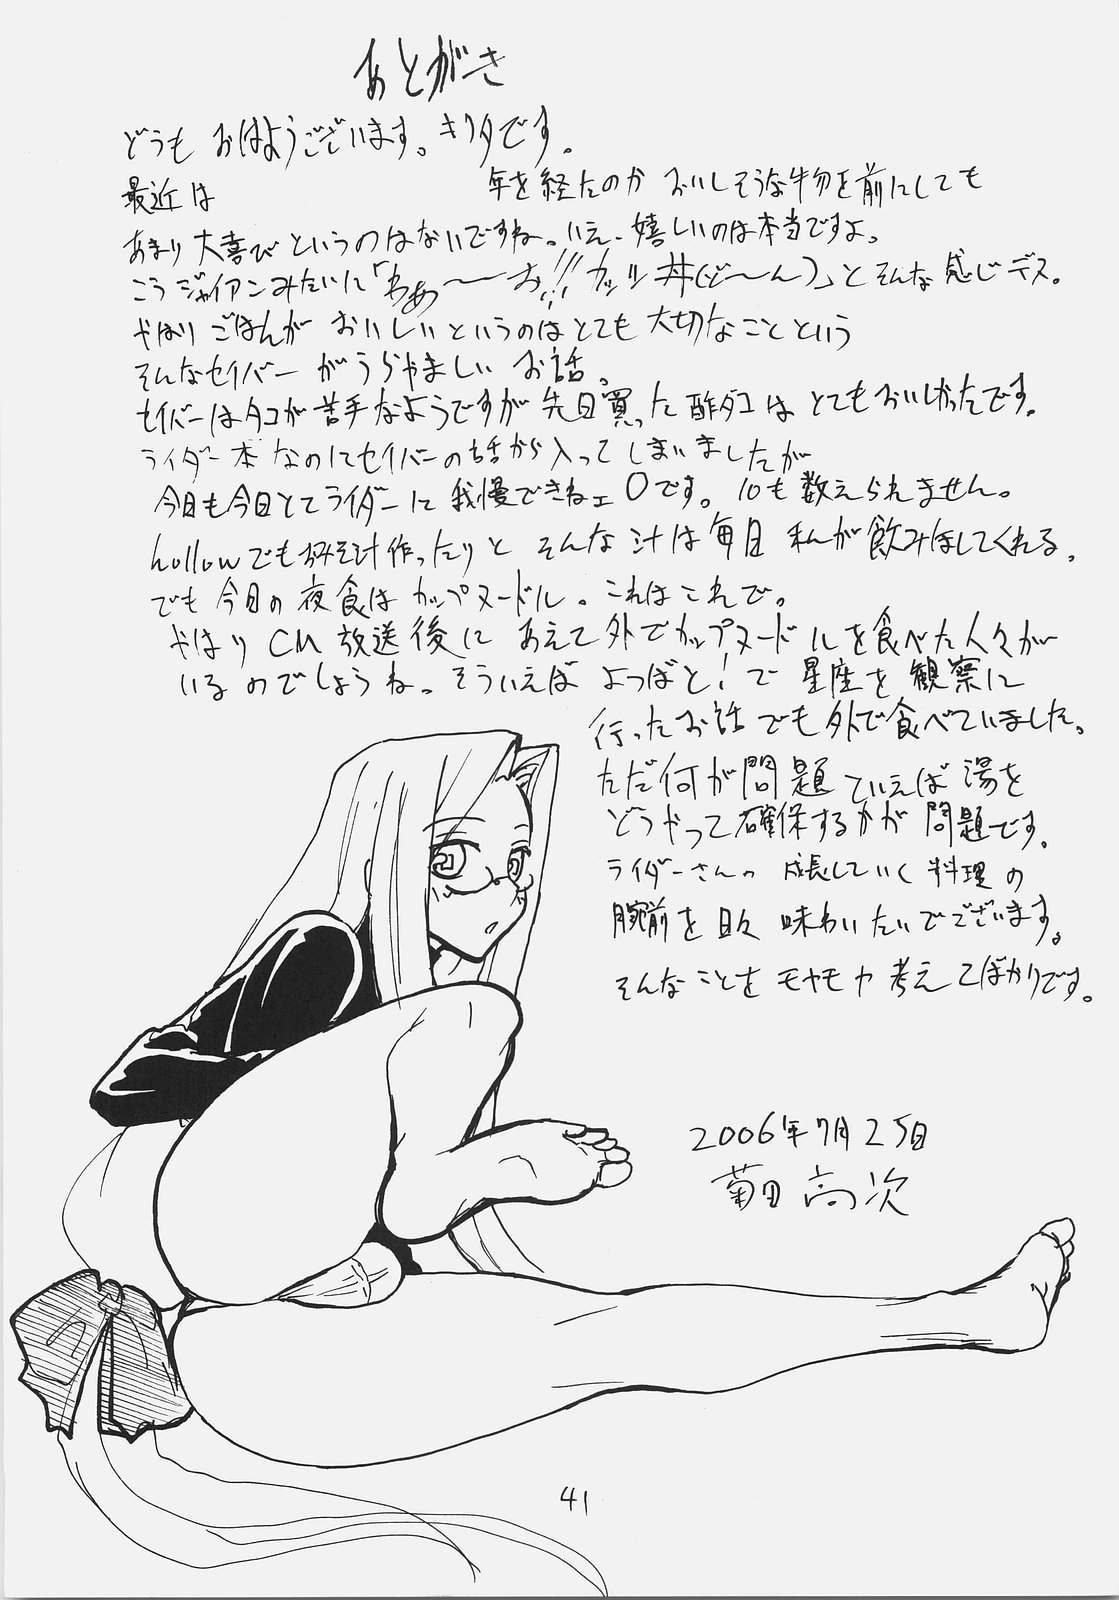 あとがき
どうも おはようございます。キクタです。
最近は 年を経たのか おいしそうな物を前にしても
あまり大喜びというのはないですね。いえ、嬉しいのは本当ですよ。
こうジャイアンみたいに「わあ〜〜お!!! カツ丼(ど〜ん)」とそんな感じデス。
やはりごはんがおいしいというのはとても大切なことという
そんなセイバーがうらやましいお話。
セイバーはタコが苦手なようですが先日買った酢ダコはとてもおいしかったです。
ライダー本なのにセイバーの話から入ってしまいましたが
今日も今日とてライダーに我慢できねェ0です。10も数えられません。
hollowでもおみそ汁作ったりと そんな汁は毎日私が飲みほしてくれる。
でも今日の夜食はカップヌードル。これはこれで。
やはりCM放送後に あえて外でカップヌードルを食べた人々が
いるのでしょうね。そういえば よつばと!で 星座を観察に
行ったお話でも外で食べていました。
ただ何が問題ていえば湯を
どうやって確保するかが問題です。
ライダーさんの 成長していく料理の
腕前を日々味わいたいでございます。
そんなことをモヤモヤ考えてばかりです。
2006年7月25日
菊田高次
41